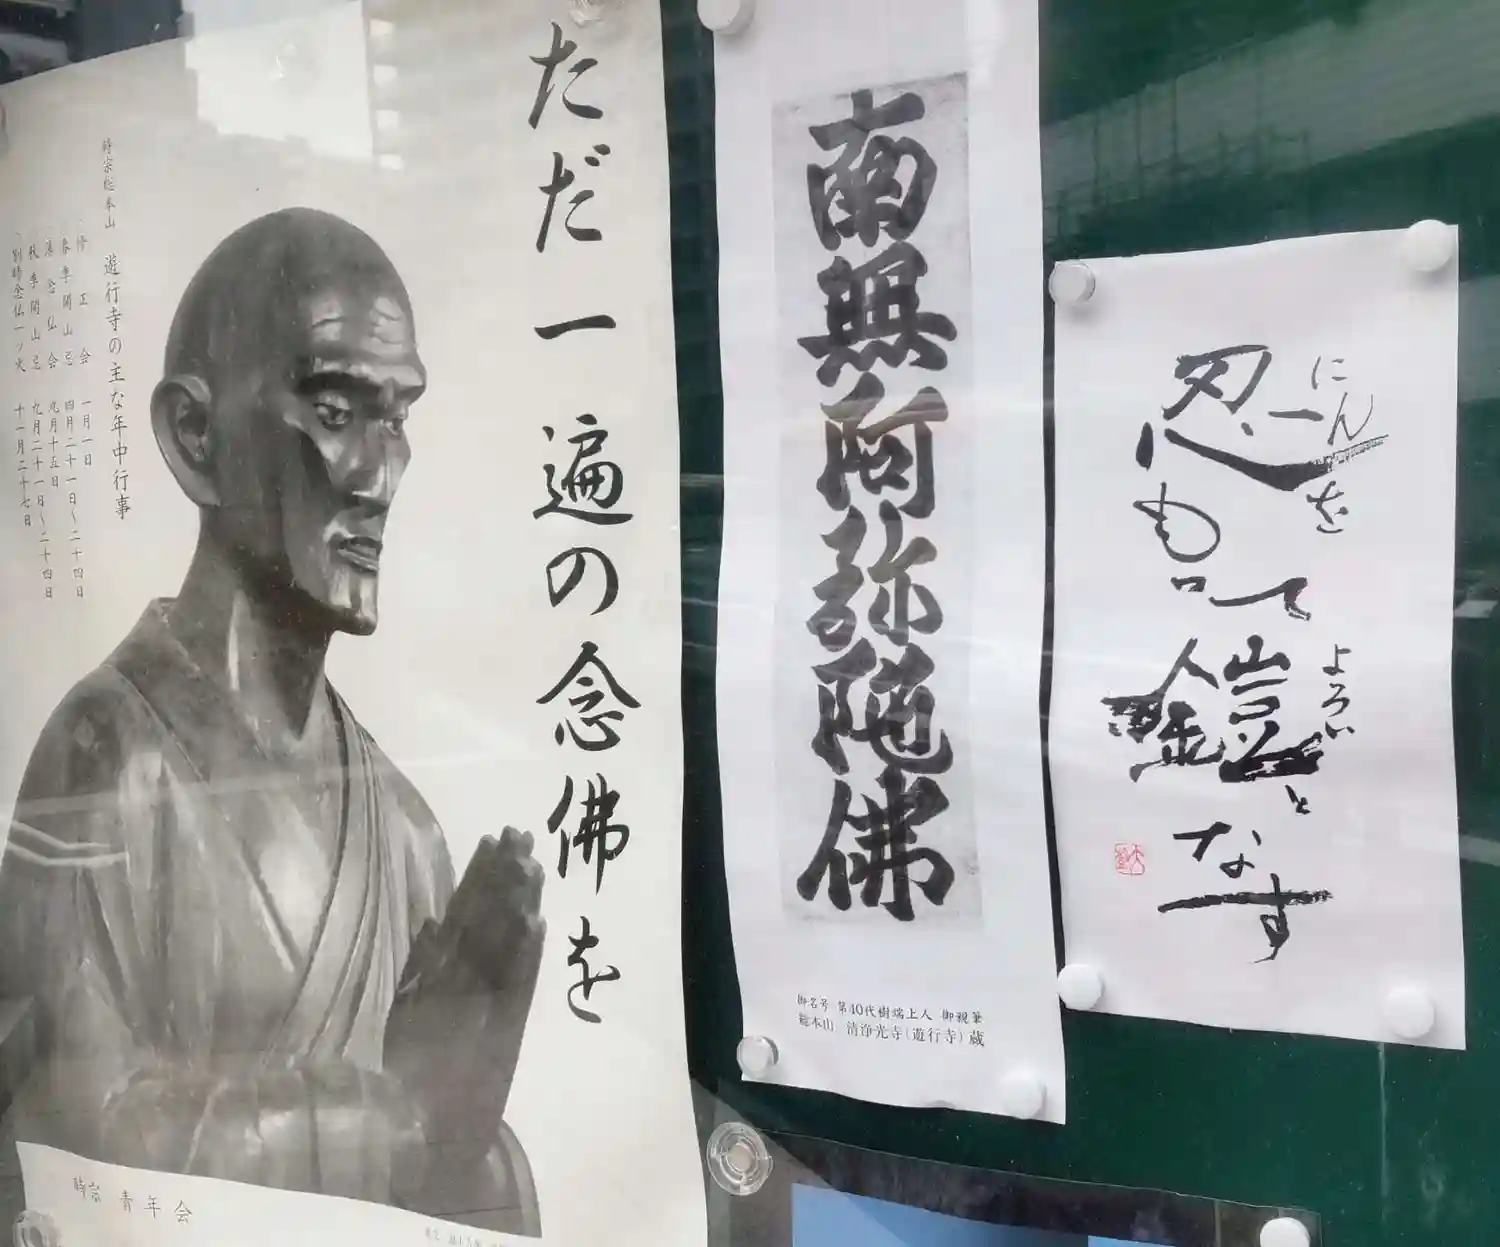 ただ一遍の念佛を
時宗総本山 遊行寺の主な年中行事
修正会 一月一日
春季開山忌 四月二十一日~二十四日
薄念仏会 九月十五日
秋季開山忌 九月二十一日~二十四日
別時念仏一ツ火 十一月二十七日
時宗 青年会
南無阿弥陀佛
御名号 第40代樹端上人 御親筆
総本山 清浄光寺(遊行寺)蔵
にん
忍を
もって
よろい
鎧と
なす